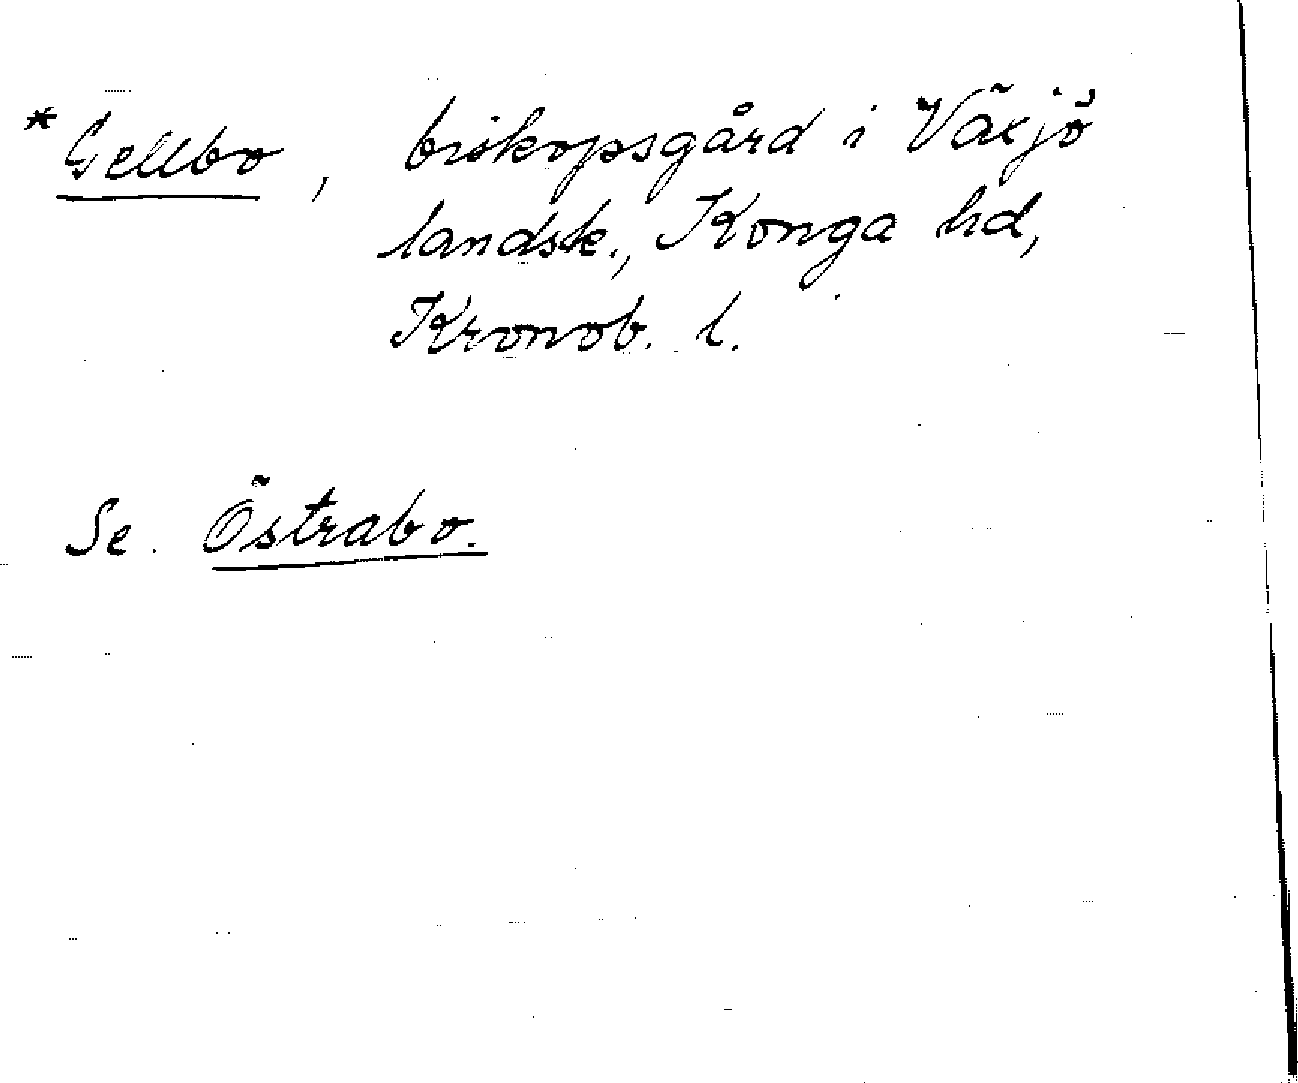 *Gellbo, biskopsgård i Växjö
landsk., Konga hd,
Kronob. l.
Se. Östrabo.